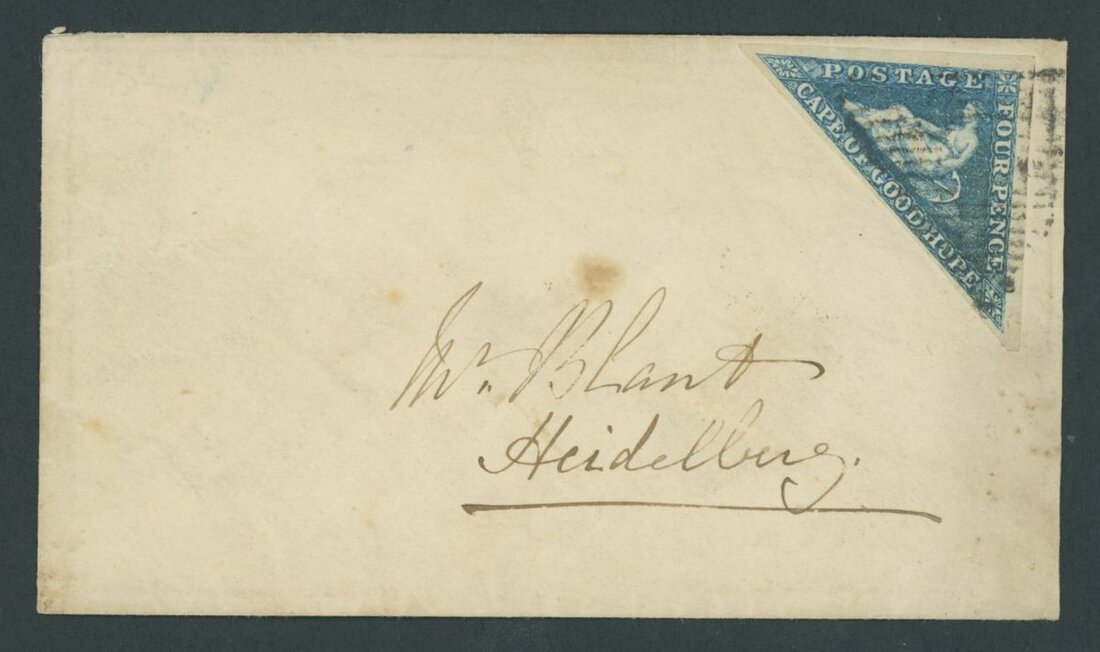 POSTAGE
FOUR PENCE
CAPE OF GOOD HOPE
Mr. Blant
Heidelberg.